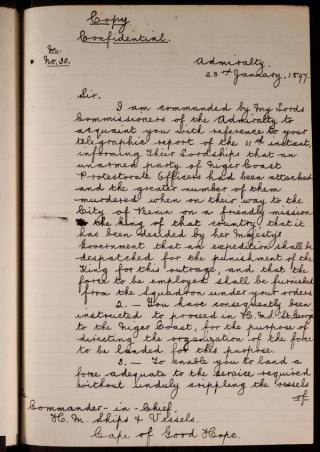 Copy
Confidential.
M.
No. 30.
Admiralty.
23rd January, 1897.
Sir.
I am commanded by My Lords
Commissioners of the Admiralty to
acquaint you with reference to your
telegraphic report of the 11th instant,
informing Their Lordships that an
unarmed party of Niger Coast
Protectorate Officers had been attacked
and the greater number of them
murdered when on their way to the
City of Benin on a friendly mission
the King of that country, that it
has been decided by her Majesty's
Government that an expedition shall be
despatched for the punishment of the
King for this outrage, and that the
force to be employed shall be furnished
from the Squadron under your orders
2. — You have consequently been
instructed to proceed in H.M.S. St. George
to the Niger Coast, for the purpose of
directing the organization of the force
to be landed for this purpose.
3. — To enable you to land a
force adequate to the service required
without unduly crippling the vessels
of
Commander-in-Chief,
H. M. Ships & Vessels.
Cape of Good Hope.